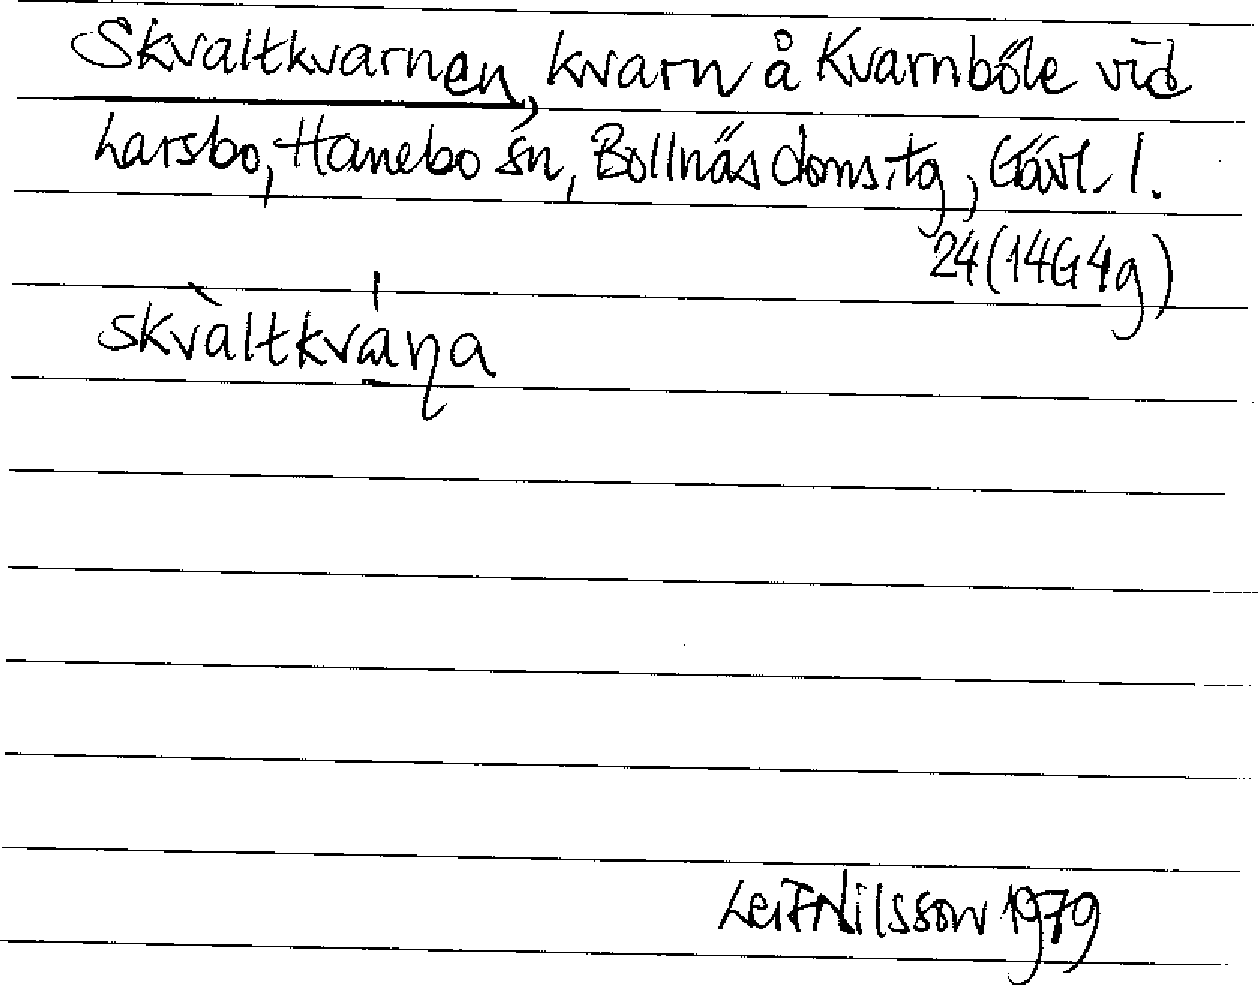 Skvaltkvarnen, kvarn å Kvarnböle vid
Larsbo, Hanebo sn, Bollnäs doms.tg, Gävl. l.
24 (14G4g)
skvàltkváɳa
Leif Nilsson 1979